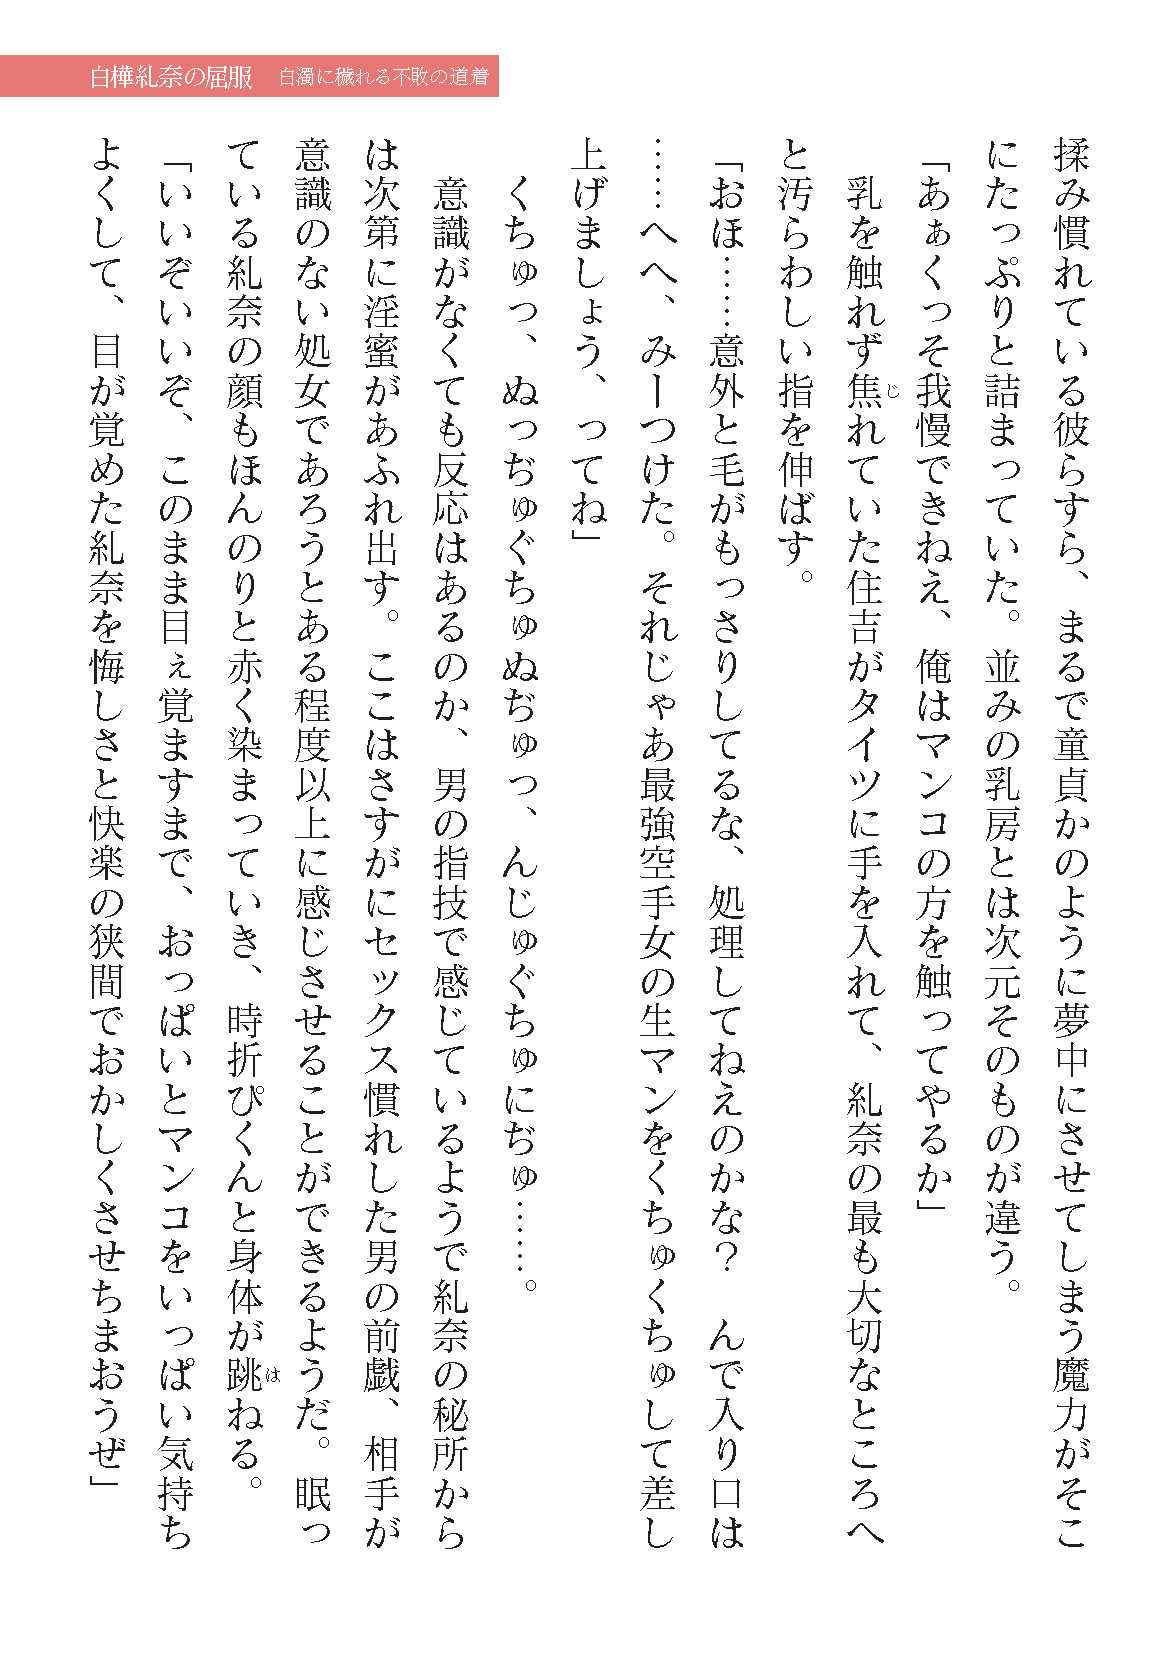 白樺糺奈の屈服　白濁に穢れる不敗の道着
揉み慣れている彼らすら、まるで童貞かのように夢中にさせてしまう魔力がそこ
にたっぷりと詰まっていた。並みの乳房とは次元そのものが違う。
「あぁくっそ我慢できねえ、俺はマンコの方を触ってやるか」
　乳を触れず焦れていた住吉がタイツに手を入れて、糺奈の最も大切なところへ
と汚らわしい指を伸ばす。
「おほ……意外と毛がもっさりしてるな、処理してねえのかな？　んで入り口は
……へへ、みーつけた。それじゃあ最強空手女の生マンをくちゅくちゅして差し
上げましょう、ってね」
　くちゅっ、ぬっぢゅぐちゅぬぢゅっ、んじゅぐちゅにぢゅ……。
　意識がなくても反応はあるのか、男の指技で感じているようで糺奈の秘所から
は次第に淫蜜があふれ出す。ここはさすがにセックス慣れした男の前戯、相手が
意識のない処女であろうとある程度以上に感じさせることができるようだ。眠っ
ている糺奈の顔もほんのりと赤く染まっていき、時折ぴくんと身体が跳ねる。
「いいぞいいぞ、このまま目ぇ覚ますまで、おっぱいとマンコをいっぱい気持ち
よくして、目が覚めた糺奈を悔しさと快楽の狭間でおかしくさせちまおうぜ」